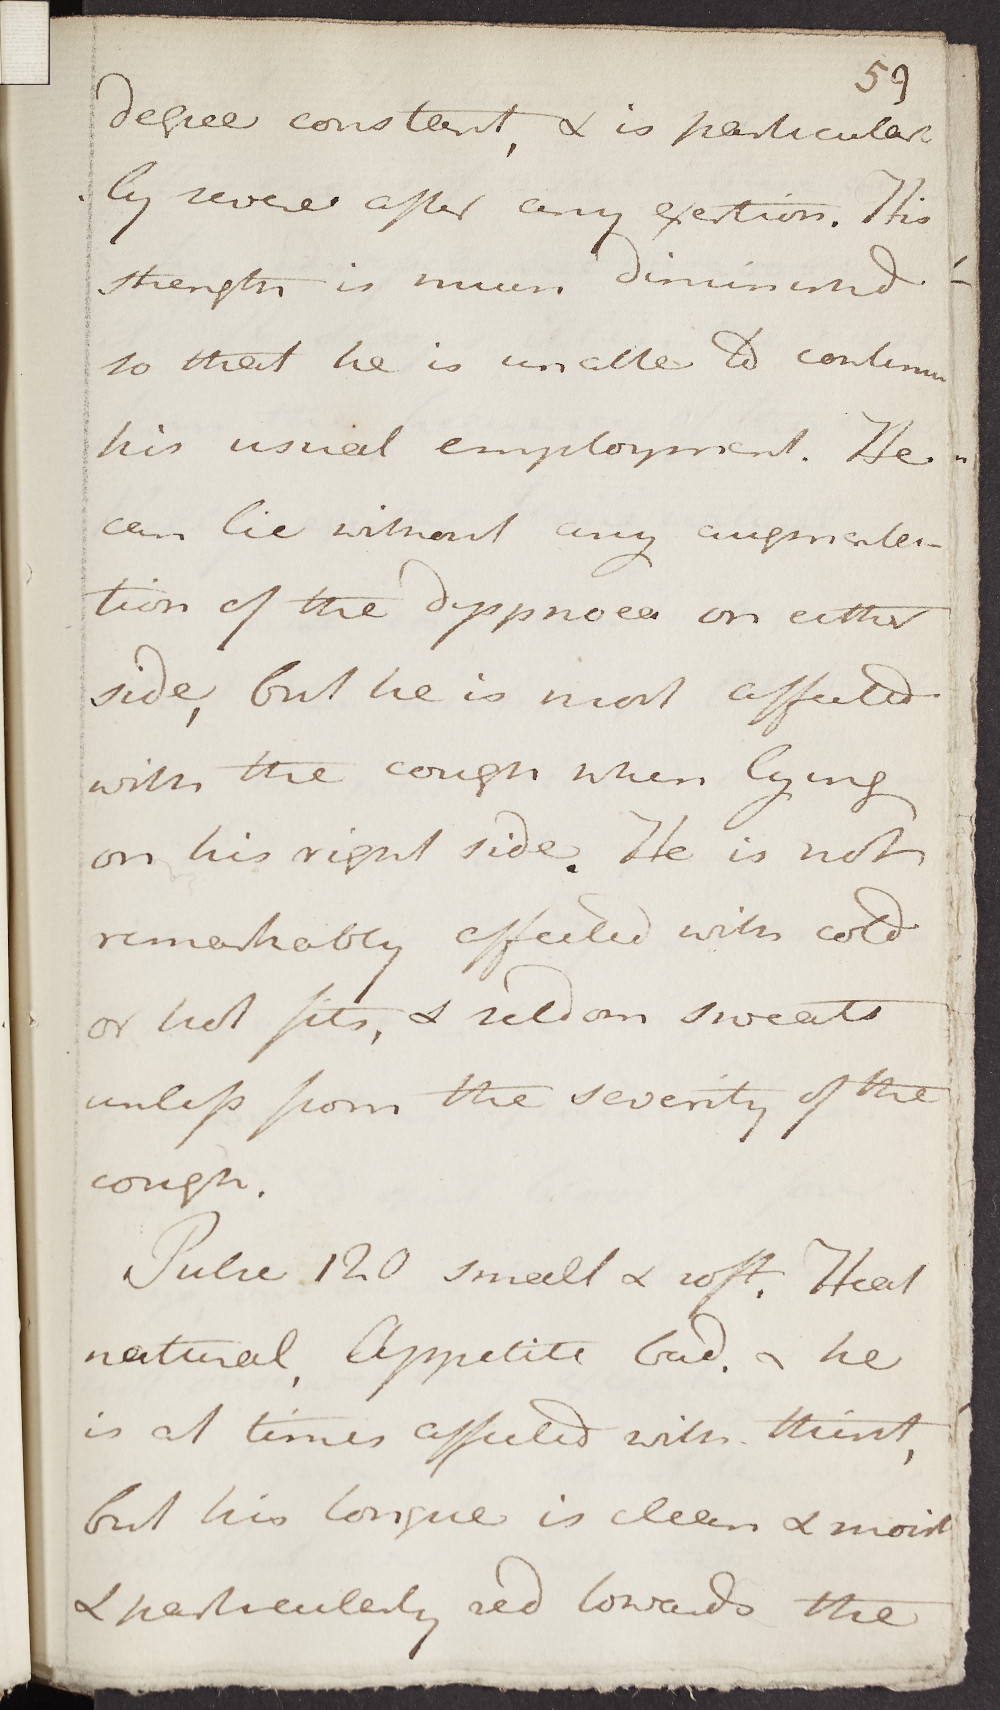 59
degree constant, & is particular
ly severe after any exertion. His
strength is much diminished
so that he is unable to continue
his usual employment. He
can lie without any augmenta-
tion of the dyspnoea on either
side, but he is most affected
with the cough when lying
on his right side. He is not
remarkably affected with cold
or hot fits, & seldom sweats
unless from the severity of the
cough.
Pulse 120 small & soft. Heat
natural, Appetite bad. & he
is at times affected with thirst,
but his tongue is clean & moist
& particularly red towards the